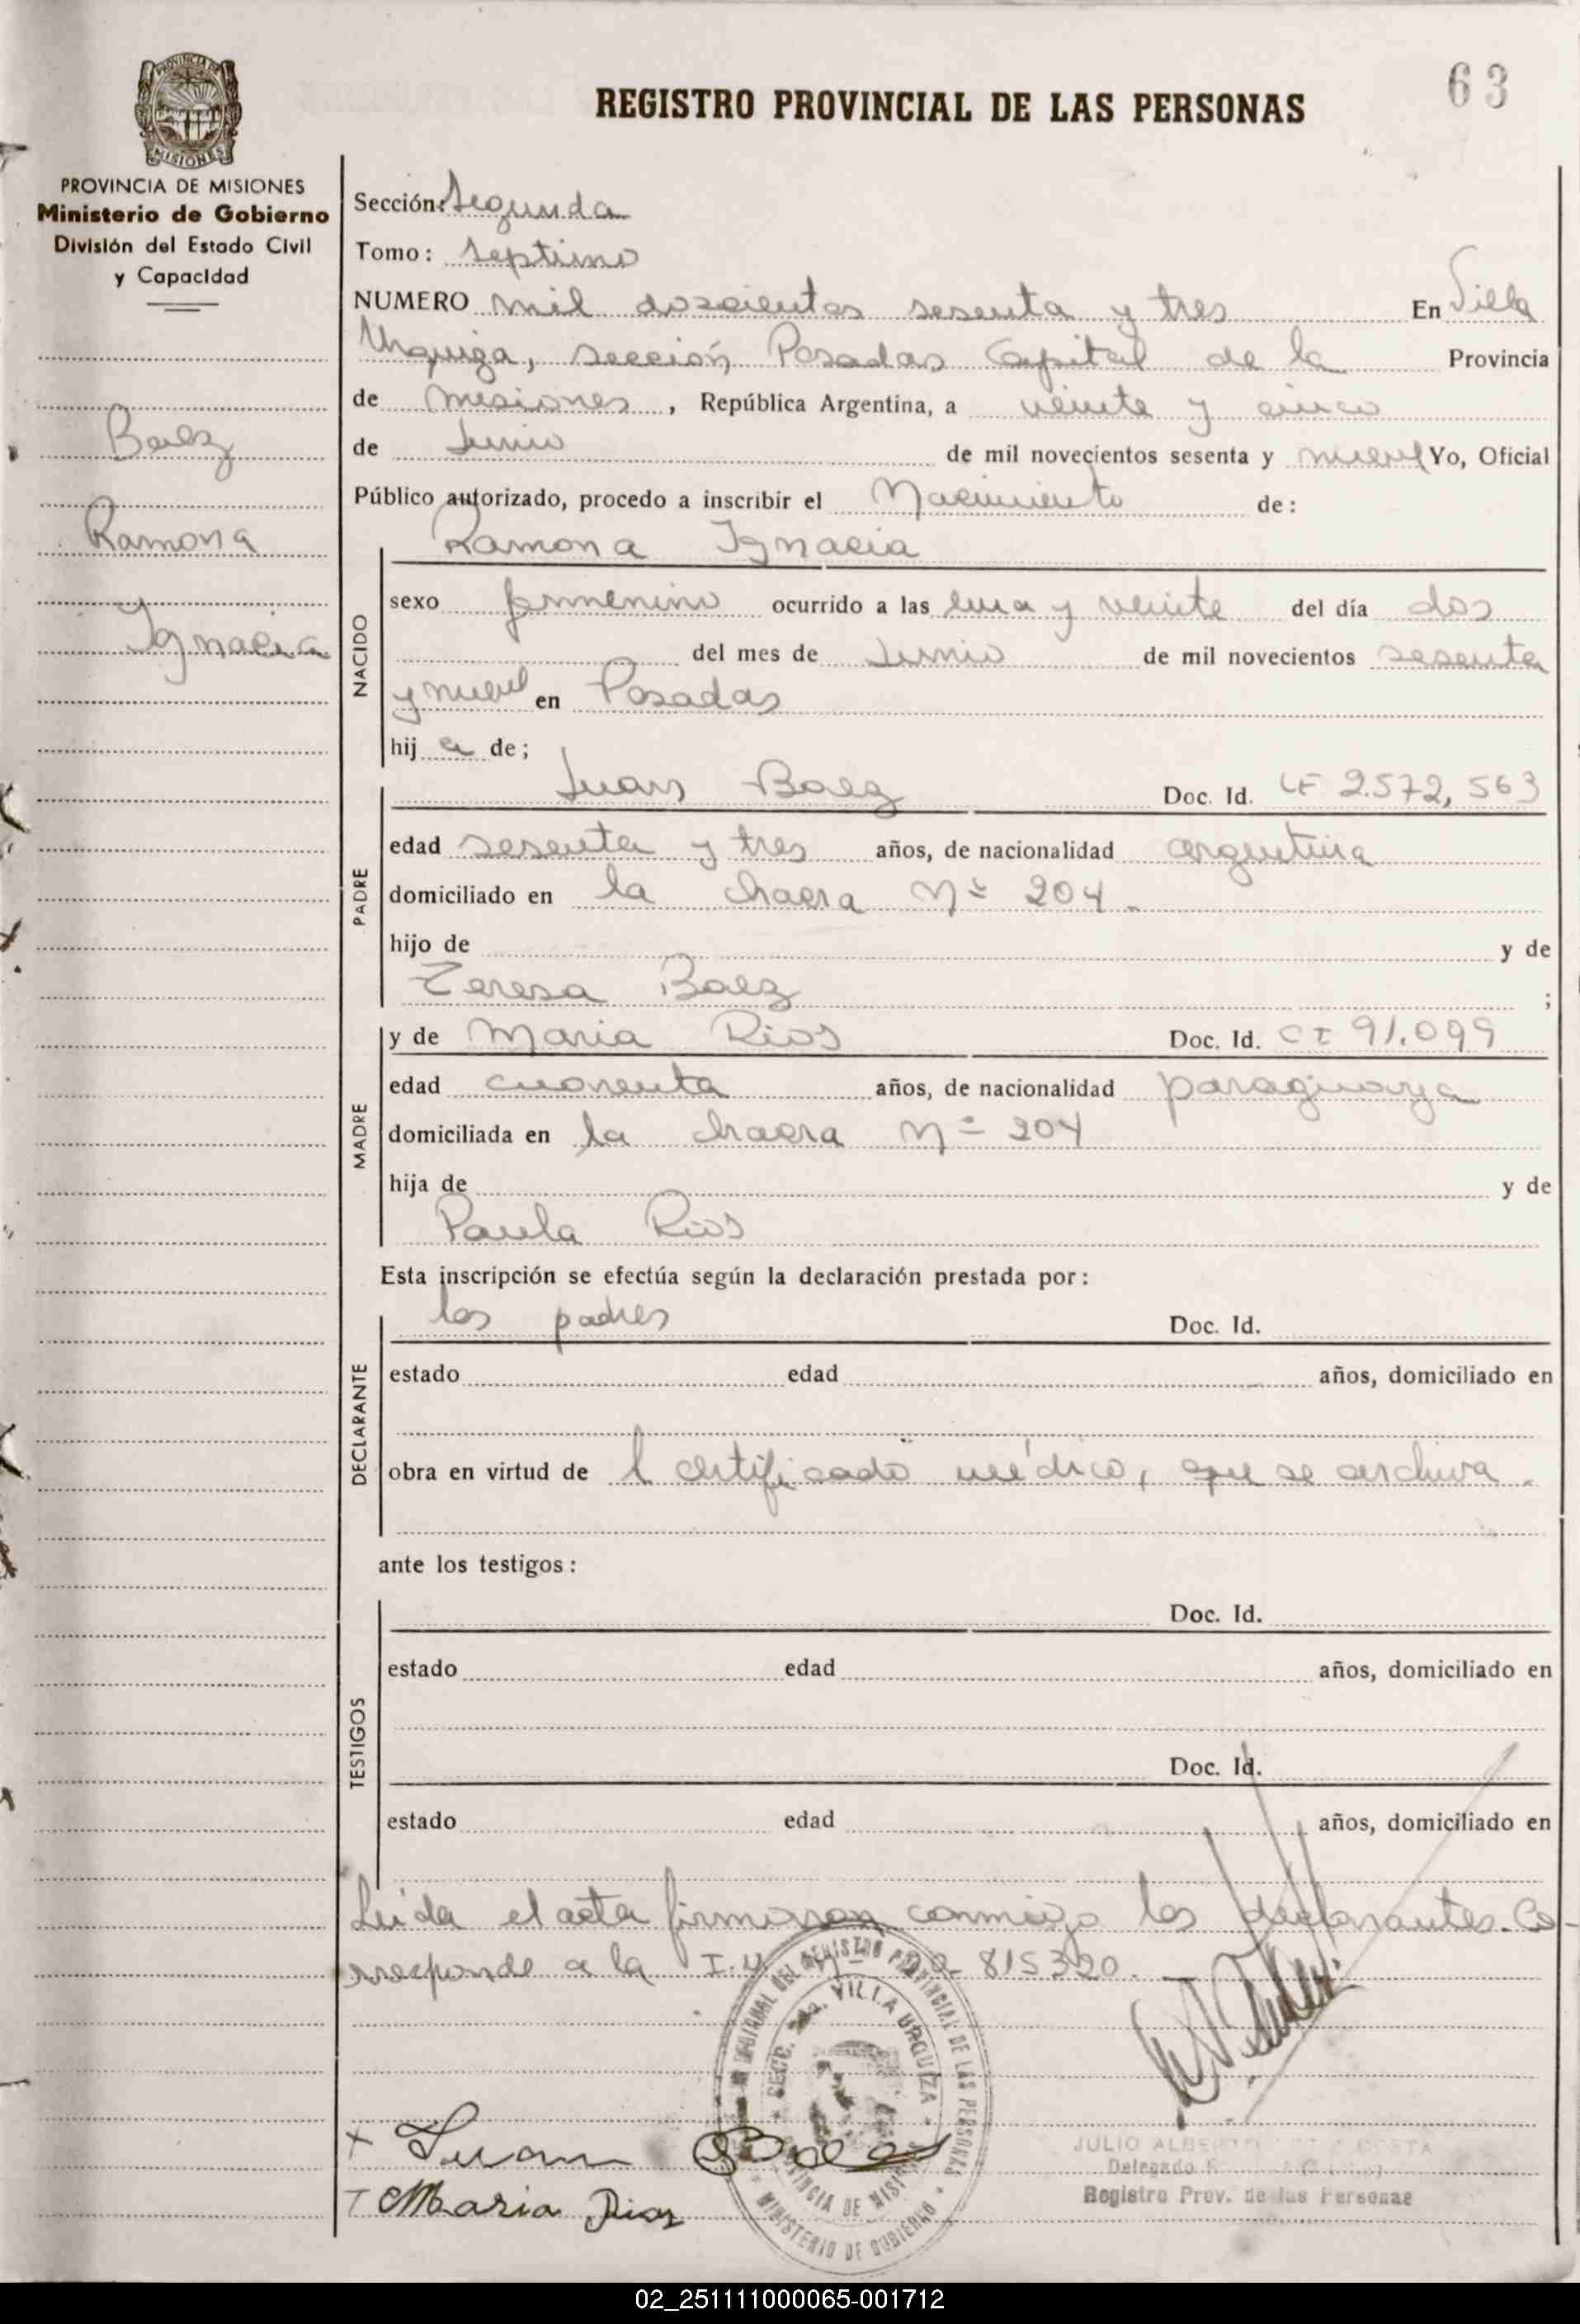 63
REGISTRO PROVINCIAL DE LAS PERSONAS
PROVINCIA DE
MISIONES
PROVINCIA DE MISIONES
Ministerio de Gobierno
División del Estado Civil
y Capacidad
Baez
Ramona
Ignacia
Sección: Segunda
Tomo: septimo
NUMERO mil doscientos sesenta y tres En Villa
Urquiza, sección Posadas Capital de la Provincia
de Misiones, República Argentina, a veinte y cinco
de Junio de mil novecientos sesenta y nueve Yo, Oficial
Público autorizado, procedo a inscribir el Nacimiento de:
Ramona Ignacia
NACIDO
sexo femenino ocurrido a las una y veinte del día dos
del mes de Junio de mil novecientos sesenta
y nueve en Posadas
hij a de;
PADRE
Juan Baez Doc. Id. LE 2.572,563
edad sesenta y tres años, de nacionalidad argentina
domiciliado en la chacra Nº 204.
hijo de y de
Teresa Baez ;
MADRE
y de Maria Rios Doc. Id. CI 91.099
edad cuarenta años, de nacionalidad paraguaya
domiciliada en la chacra Nº 204
hija de y de
Paula Rios
Esta inscripción se efectúa según la declaración prestada por:
DECLARANTE
los padres Doc. Id.
estado edad años, domiciliado en
obra en virtud de l certificado médico, que se archiva.
ante los testigos:
TESTIGOS
Doc. Id.
estado edad años, domiciliado en
Doc. Id.
estado edad años, domiciliado en
Leida el acta firmaron conmigo los declarantes. Co-
rresponde a la 815320.
REGISTRO PROVINCIAL DE LAS PERSONAS
SECC. 2da. VILLA URQUIZA
PROVINCIA DE MISIONES
MINISTERIO DE GOBIERNO
x Juan Baez
Maria Rios
JULIO ALBERTO
Delegado
Registro Prov. de las Personas
02_251111000065-001712